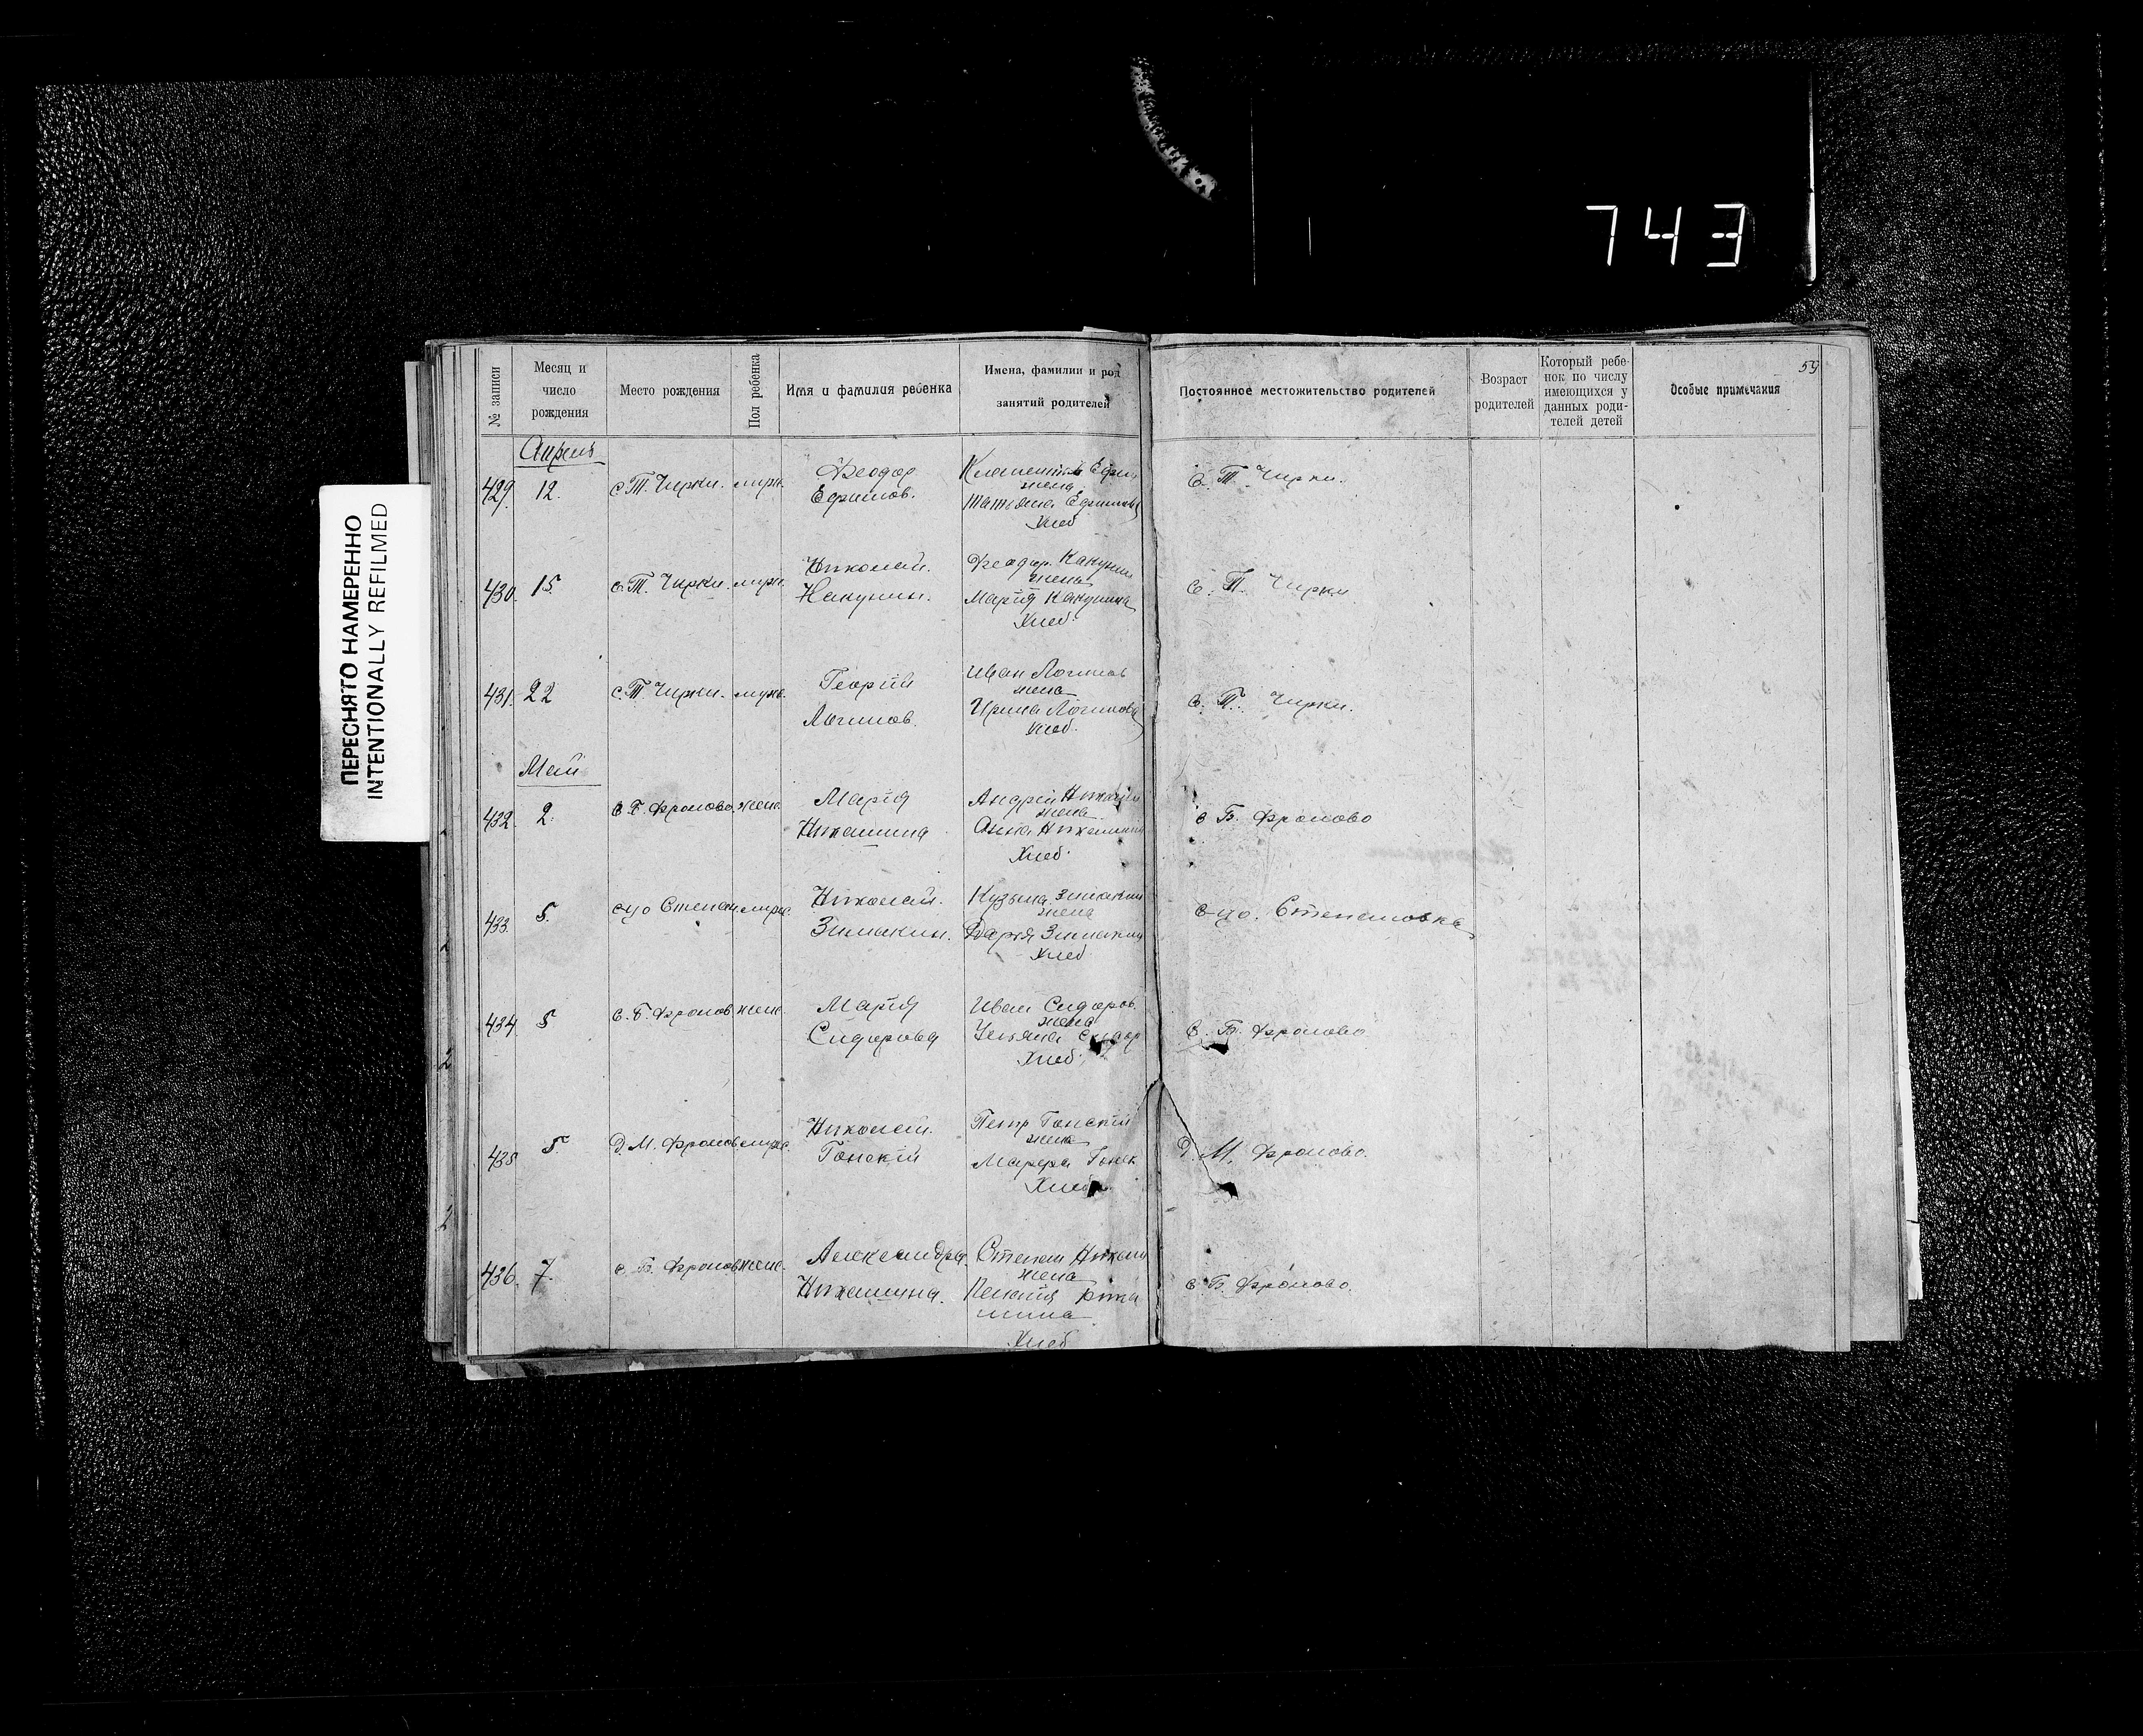 743
ПЕРЕСНЯТО НАМЕРЕННО
INTENTIONALLY REFILMED
59
№ записи
Месяц и число рождения
Место рождения
Пол ребенка
Имя и фамилия ребенка
Имена, фамилии и род занятий родителей
Постоянное местожительство родителей
Возраст родителей
Который ребенок по числу имеющихся у данных родителей детей
Особые примечания
Апрель
429. 12. с. Т. Чирки. Феодор Ефимов.
жена
Татьяна
Хлеб
с. Т. Чирки.
430. 15. с. Т. Чирки. Николай.
Феодор Какунин
жена
Мария Какунина
Хлеб.
с. Т. Чирки
431. 22 с. Т. Чирки. Георгий
Логинов.
Иван Логинов
жена
Ирина Логинова
Хлеб.
с. Т. Чирки.
Май
432. 2. с. Б. Фролово. Мария
Никашина
Андрей
жена
Анна
Хлеб.
с Б. Фролово
433. 5. Николай.
Зимакин.
Кузьма Зимакин
жена
Дарья
Хлеб
Степановка
434. 5 с. Б. Фролов Мария
Сидорова
Иван Сидоров.
жена
Ульяна
Хлеб.
с. Б. Фролово
435 5. Д. М. Фролов Николай.
Гонскій
Петр Гонскій
жена
Марфа
Хлеб.
Д. М. Фролово.
436. 7. с. Б. Фролов Александра.
Никашина.
Степан
жена
Пелагия
шина
Хлеб
с Б. Фролово.